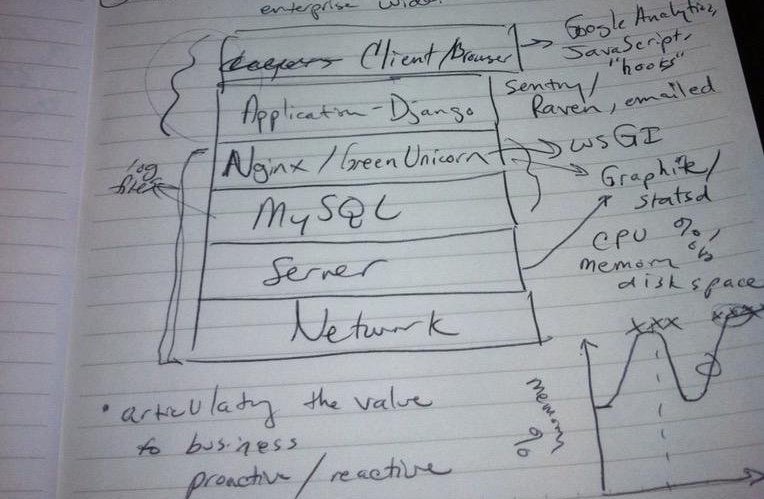 enterprise
Client/Browser
Google Analytics,
JavaScript,
"hooks"
Application-Django
Sentry/
Raven, emailed
Nginx/Green Unicorn
WSGI
log
files
Graphite/
statsd
MySQL
CPU %,
memory %
disk space
Server
Network
xxx
xxx
memory %
• articulating the value
to business
proactive/reactive